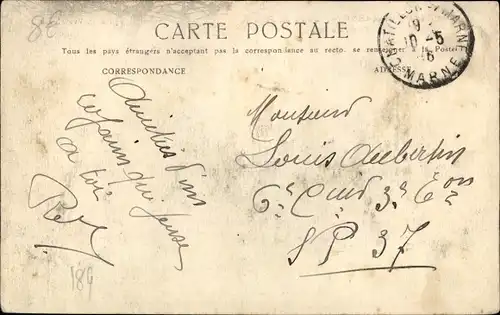 88
CARTE POSTALE
Tous les pays étrangers n'acceptant pas la correspondance au recto, se renseigner à la Poste
CORRESPONDANCE
ADRESSE
CHATILLON-S-MARNE
10-5
MARNE
Amitiés d'un
copain qui pense
a toi
Monsieur
Louis Aubertin
6e Cuir 3e Eon
SP 37
184